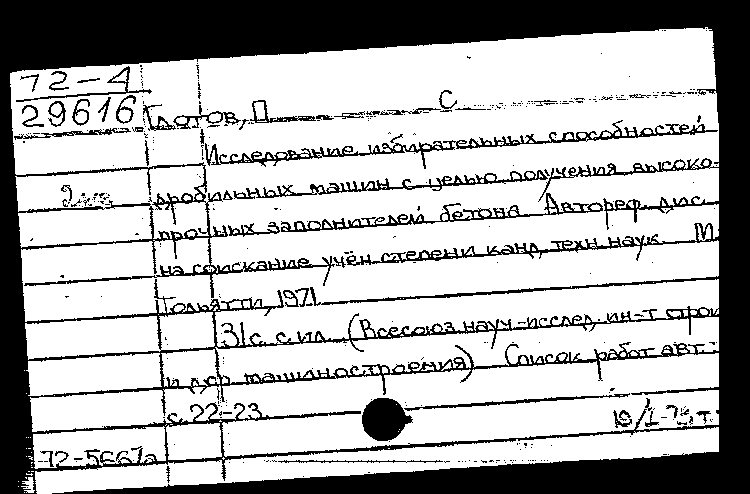 72-4
29616
Глотов, П С
Исследование избирательных способностей
2
дробильных машин с целью получения высоко-
прочных заполнителей бетона Автореф. дис.
на соискание учён степени канд. техн. наук. М.
Тольятти, 1971
31с. с ил. (Всесоюз. науч.-исслед. ин-т строи
и дор. машиностроения) Список работ авт.:
с. 22-23.
72-5667а